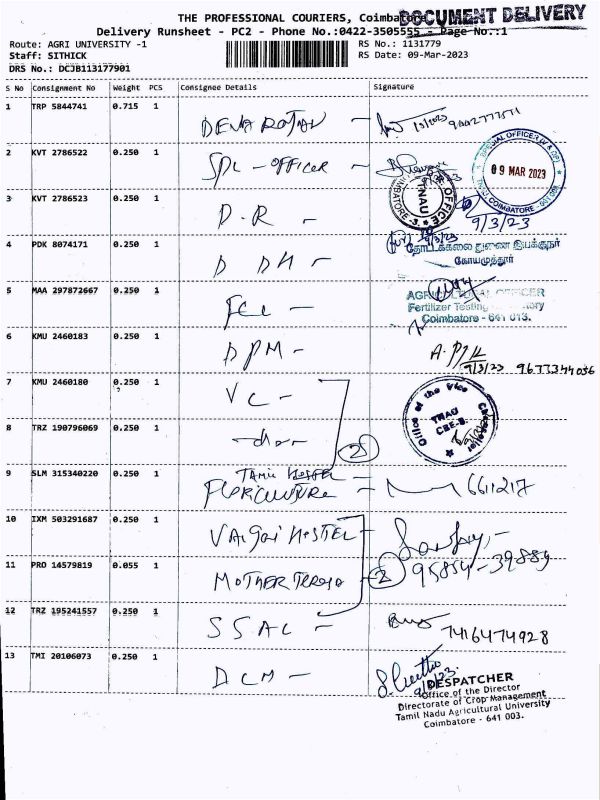 THE PROFESSIONAL COURIERS, Coimbatore
DOCUMENT DELIVERY
Delivery Runsheet - PC2 - Phone No.:0422-3505555 - Page No.:1
Route: AGRI UNIVERSITY -1
RS No.: 1131779
Staff: SITHICK
RS Date: 09-Mar-2023
DRS No.: DCJB113177901
S No Consignment No Weight PCS Consignee Details Signature
1 TRP 5844741 0.715 1
2 KVT 2786522 0.250 1 SPL - OFFICER -
SPECIAL OFFICER
09 MAR 2023
TNAU COIMBATORE - 641 003
OFFICE
TNAU
COIMBATORE-3
3 KVT 2786523 0.250 1 D.R - 9/3/23
4 PDK 8074171 0.250 1 D DH -
தோட்டக்கலை துணை இயக்குநர்
கோயமுத்தூர்
5 MAA 297872667 0.250 1
AGRICULTURAL OFFICER
Fertilizer Testing
Coimbatore - 641 013.
6 KMU 2460183 0.250 1 DPM - 9/3/23 9677344056
7 KMU 2460180 0.250 1 VC -
Office of the Vice Chancellor
TNAU
CBE-3.
8 TRZ 190796069 0.250 1 -do- - 2
9 SLM 315340220 0.250 1 TAMIL HOSTEL -
FLORICULTURE - 6611217
10 IXM 503291687 0.250 1 VAIGAI HOSTEL
11 PRO 14579819 0.055 1 MOTHER TERESA 2 95854-39889
12 TRZ 195241557 0.250 1 SSAC - 7416474928
13 TMI 20106073 0.250 1 DCM -
DESPATCHER
Office of the Director
Directorate of Crop Management
Tamil Nadu Agricultural University
Coimbatore - 641 003.